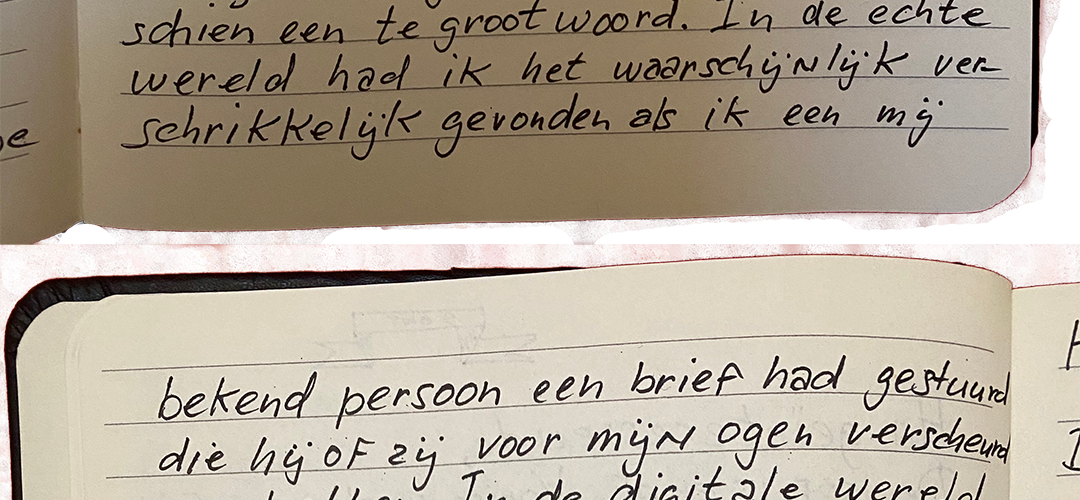 schien een te groot woord. In de echte
wereld had ik het waarschijnlijk ver-
schrikkelijk gevonden als ik een mij
bekend persoon een brief had gestuurd
die hij of zij voor mijn ogen verscheurd
In de digitale wereld